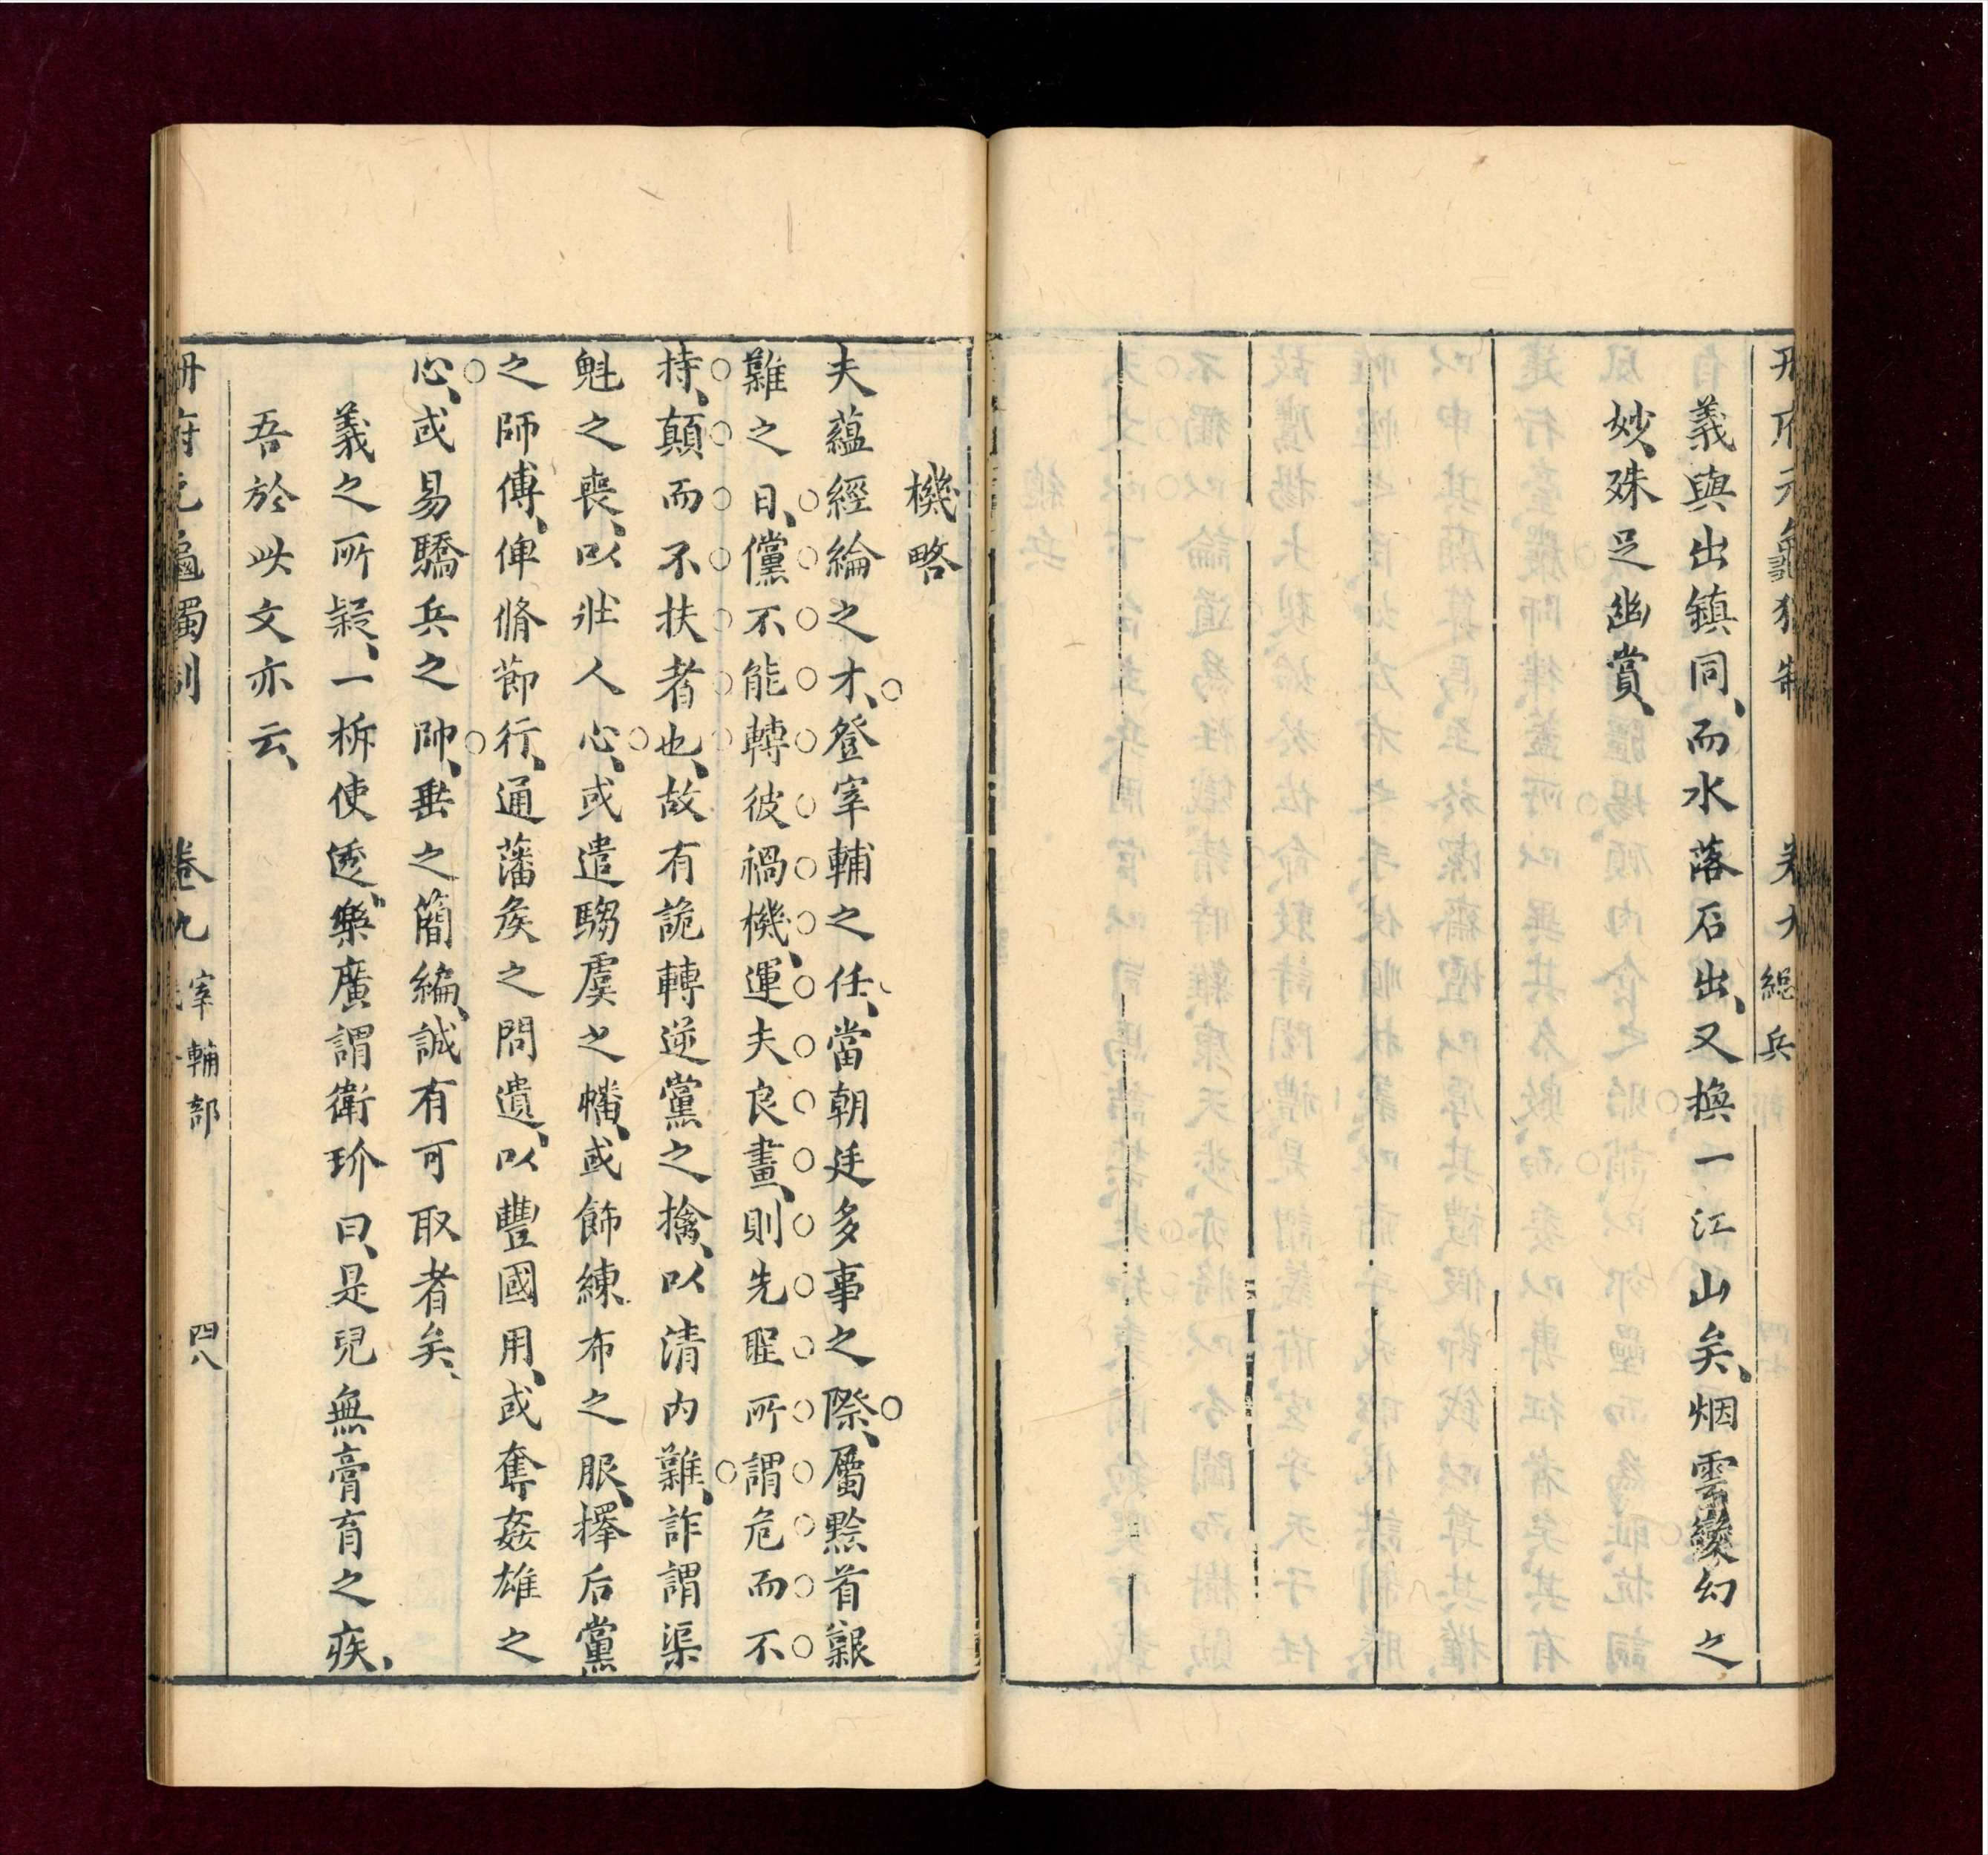 册府元龜獨制 卷九 總兵
義與出鎮同、而水落石出、又換一江山矣、烟雲變幻之
妙、殊足幽賞、
機略
夫蘊經綸之才、登宰輔之任、當朝廷多事之際、屬黔首艱
難之日、儻不能轉彼禍機、運夫良畫、則先聖所謂危而不
持、顛而不扶者也、故有詭轉逆黨之擒、以清內難、詐謂渠
魁之喪、以壯人心、或遣騶虞之幡、或飾練布之服、擇后黨
之師傅、俾脩節行、通藩矦之問遺、以豐國用、或奪姦雄之
心、或易驕兵之帥、垂之簡編、誠有可取者矣、
義之所疑、一柝使透、樂廣謂衛玠曰、是兒無膏肓之疾、
吾於此文亦云、
册府元龜獨制 卷九 宰輔部 四八